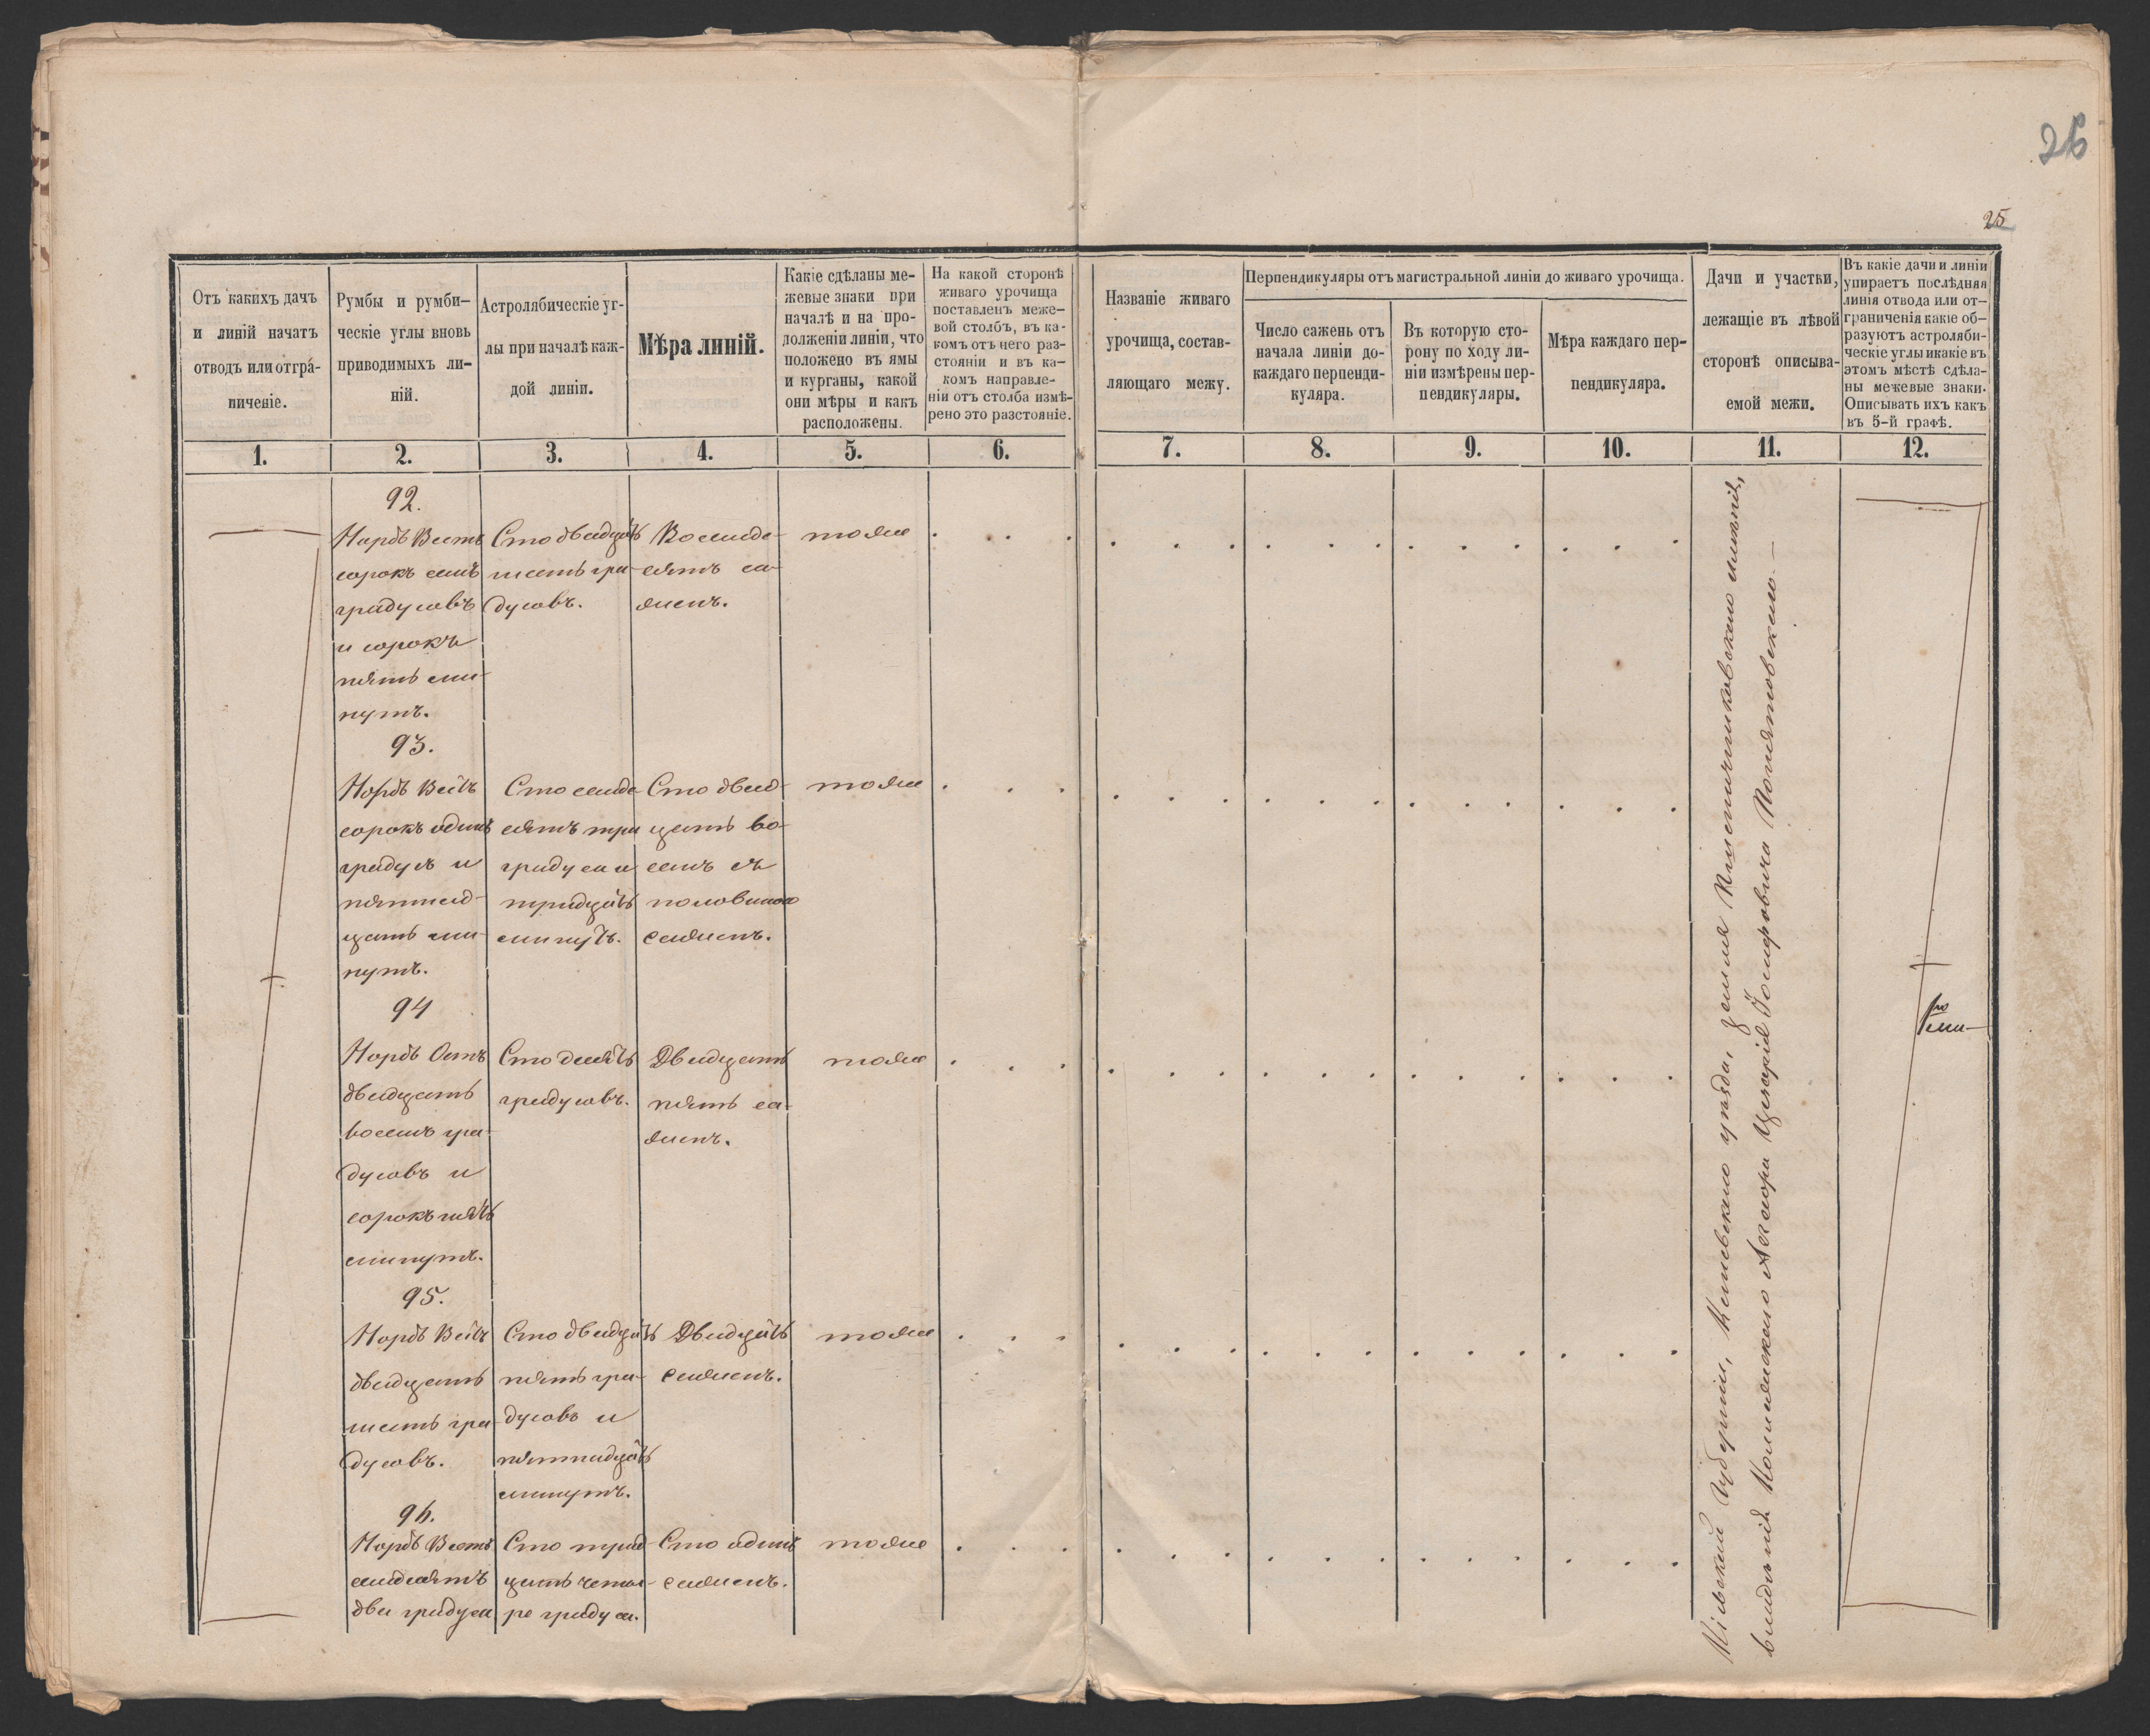 26
25
Отъ какихъ дачъ
и линій начатъ
отводъ или отгра-
ниченіе.
Румбы и румби-
ческіе углы вновь
приводимыхъ ли-
ній.
Астролябическіе уг-
лы при началѣ каж-
дой линіи.
Мѣра линій.
Какіе сдѣланы ме-
жевые знаки при
началѣ и на про-
долженіи линіи, что
положено въ ямы
и курганы, какой
они мѣры и какъ
расположены.
На какой сторонѣ
живаго урочища
поставленъ меже-
вой столбъ, въ ка-
комъ отъ него раз-
стояніи и въ ка-
комъ направле-
ніи отъ столба измѣ-
рено это разстояніе.
Названіе живаго
урочища, состав-
ляющаго межу.
Перпендикуляры отъ магистральной линіи до живаго урочища.
Число сажень отъ
начала линіи до
каждаго перпенди-
куляра.
Въ которую сто-
рону по ходу ли-
ніи измѣрены пер-
пендикуляры.
Мѣра каждаго пер-
пендикуляра.
Дачи и участки,
лежащіе въ лѣвой
сторонѣ описыва-
емой межи.
Въ какіе дачи и линіи
упираетъ послѣдняя
линія отвода или от-
граниченія какіе об-
разуютъ астроляби-
ческіе углы и какіе въ
этомъ мѣстѣ сдѣла-
ны межевые знаки.
Описывать ихъ какъ
въ 5-й графѣ.
1. 2. 3. 4. 5. 6. 7. 8. 9. 10. 11. 12.
92.
Нордъ Вестъ
сорокъ семь
градусовъ
и сорокъ
пять ми-
нутъ.
Сто двадцать
шесть гра-
дусовъ.
Восемьде-
сятъ са-
женъ.
тоже
93.
Нордъ Вестъ
сорокъ одинъ
градусъ и
пятнад-
цать ми-
нутъ.
Сто семьде-
сятъ три
градуса и
тридцать
минутъ.
Сто двад-
цать во-
семь съ
половиною
саженъ.
тоже
94
Нордъ Остъ
двадцать
восемь гра-
дусовъ и
сорокъ пять
минутъ.
Сто десять
градусовъ.
Двадцать
пять са-
женъ.
тоже
95.
Нордъ Вестъ
двадцать
шесть гра-
дусовъ.
Сто двадцать
пять гра-
дусовъ и
пятнадцать
минутъ.
Двадцать
саженъ.
тоже
96.
Нордъ Вестъ
семьдесятъ
два градуса
Сто трид-
цать четы-
ре градуса.
Сто одинъ
саженъ.
тоже
Кіевской Губерніи, уѣзда, земля имѣнія,
владѣнія Коллежскаго Ассесора Цезарія Іосифовича Понятовскаго.